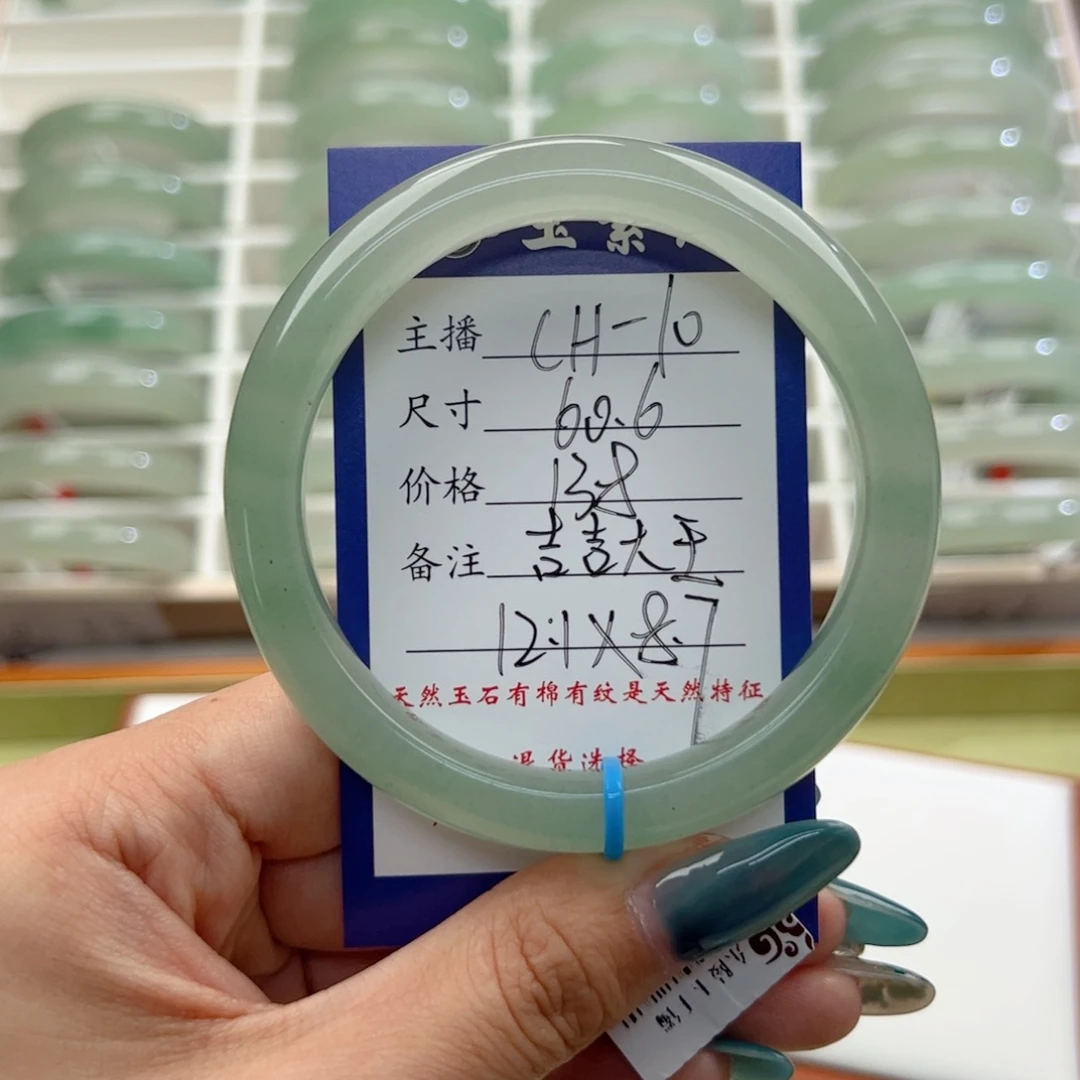 玉素
主播 CH-10
尺寸 60.6
价格 138
备注 吉吉大王
12.1X8.7
天然玉石有棉有纹是天然特征
退货选择